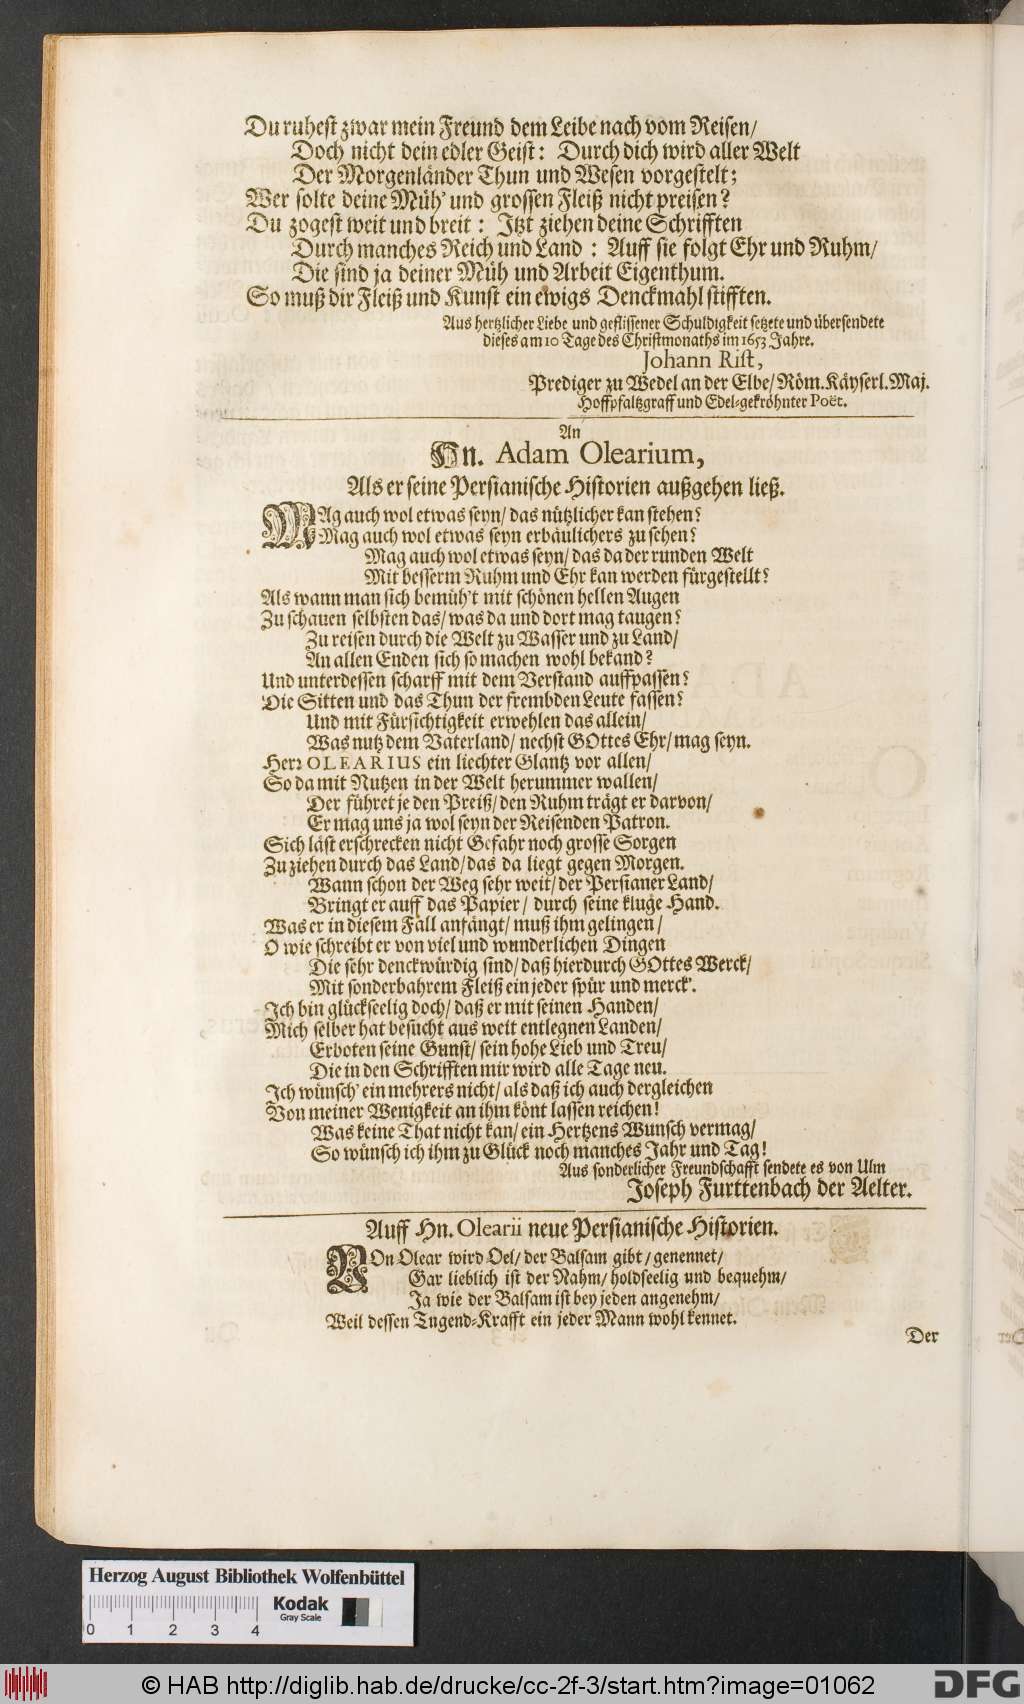 Du ruhest zwar mein Freund dem Leibe nach vom Reisen/
Doch nicht dein edler Geist: Durch dich wird aller Welt
Der Morgenländer Thun und Wesen vorgestelt;
Wer solte deine Müh' und grossen Fleiß nicht preisen?
Du zogest weit und breit: Itzt ziehen deine Schrifften
Durch manches Reich und Land: Auff sie folgt Ehr und Ruhm/
Die sind ja deiner Müh und Arbeit Eigenthum.
So muß dir Fleiß und Kunst ein ewigs Denckmahl stifften.
Aus hertzlicher Liebe und geflissener Schuldigkeit setzete und übersendete
dieses am 10 Tage des Christmonaths im 1653 Jahre.
Johann Rist,
Prediger zu Wedel an der Elbe/ Röm. Käyserl. Maj.
Hoffpfaltzgraff und Edel-gekröhnter Poët.
An
Hn. Adam Olearium,
Als er seine Persianische Historien außgehen ließ.
MAg auch wol etwas seyn/ das nützlicher kan stehen?
Mag auch wol etwas seyn erbäulichers zu sehen?
Mag auch wol etwas seyn/ das da der runden Welt
Mit besserm Ruhm und Ehr kan werden fürgestellt?
Als wann man sich bemüh't mit schönen hellen Augen
Zu schauen selbsten das/ was da und dort mag taugen?
Zu reisen durch die Welt zu Wasser und zu Land/
An allen Enden sich so machen wohl bekand?
Und unterdessen scharff mit dem Verstand auffpassen?
Die Sitten und das Thun der frembden Leute fassen?
Und mit Fürsichtigkeit erwehlen das allein/
Was nutz dem Vaterland/ nechst GOttes Ehr/ mag seyn.
Herr OLEARIUS ein liechter Glantz vor allen/
So da mit Nutzen in der Welt herummer wallen/
Der führet je den Preiß/ den Ruhm trägt er darvon/
Er mag uns ja wol seyn der Reisenden Patron.
Sich läst erschrecken nicht Gefahr noch grosse Sorgen
Zu ziehen durch das Land/ das da liegt gegen Morgen.
Wann schon der Weg sehr weit/ der Persianer Land/
Bringt er auff das Papier/ durch seine kluge Hand.
Was er in diesem Fall anfängt/ muß ihm gelingen/
O wie schreibt er von viel und wunderlichen Dingen
Die sehr denckwürdig sind/ daß hierdurch GOttes Werck/
Mit sonderbahrem Fleiß ein jeder spür und merck'.
Ich bin glückseelig doch/ daß er mit seinen Handen/
Mich selber hat besucht aus weit entlegnen Landen/
Erboten seine Gunst/ sein hohe Lieb und Treu/
Die in den Schrifften mir wird alle Tage neu.
Ich wünsch' ein mehrers nicht/ als daß ich auch dergleichen
Von meiner Wenigkeit an ihm könt lassen reichen!
Was keine That nicht kan/ ein Hertzens Wunsch vermag/
So wünsch ich ihm zu Glück noch manches Jahr und Tag!
Aus sonderlicher Freundschafft sendete es von Ulm
Joseph Furttenbach der Aelter.
Auff Hn. Olearii neue Persianische Historien.
VOn Olear wird Oel/ der Balsam gibt/ genennet/
Gar lieblich ist der Nahm/ holdseelig und bequehm/
Ja wie der Balsam ist bey jeden angenehm/
Weil dessen Tugend-Krafft ein jeder Mann wohl kennet.
Der
Herzog August Bibliothek Wolfenbüttel
Kodak
Gray Scale
0 1 2 3 4
© HAB http://diglib.hab.de/drucke/cc-2f-3/start.htm?image=01062
DFG